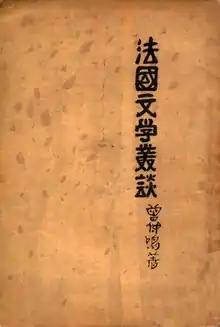 法國文学叢談
曾仲鳴著